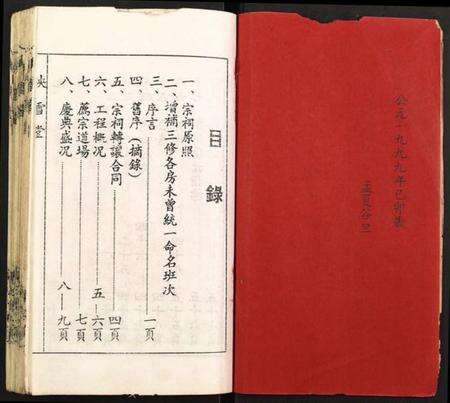 公元一九九九年己卯歲
孟夏谷旦
目錄
一、宗祠原照
二、增補三修各房未曾統一命名班次
三、序言 一頁
四、舊序（摘錄）
五、宗祠轉讓合同 四頁
六、工程概況 五—六頁
七、薦宗道場 七頁
八、慶典盛況 八—九頁
映雪堂